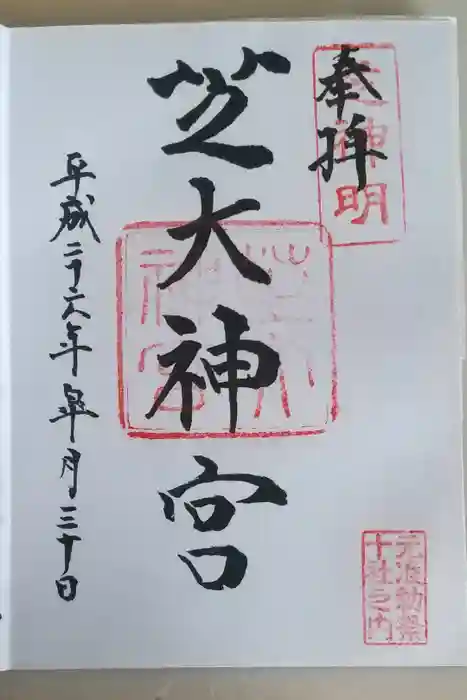 奉拝
芝神明
芝大神宮
芝大神宮
平成二十六年皐月三十日
元准勅祭
十社之内